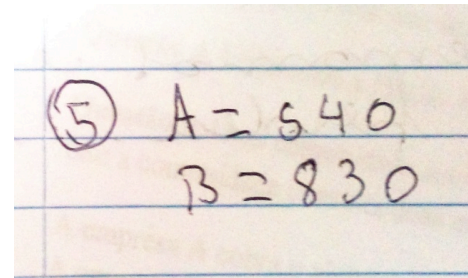 ⑤ A = 540
B = 830